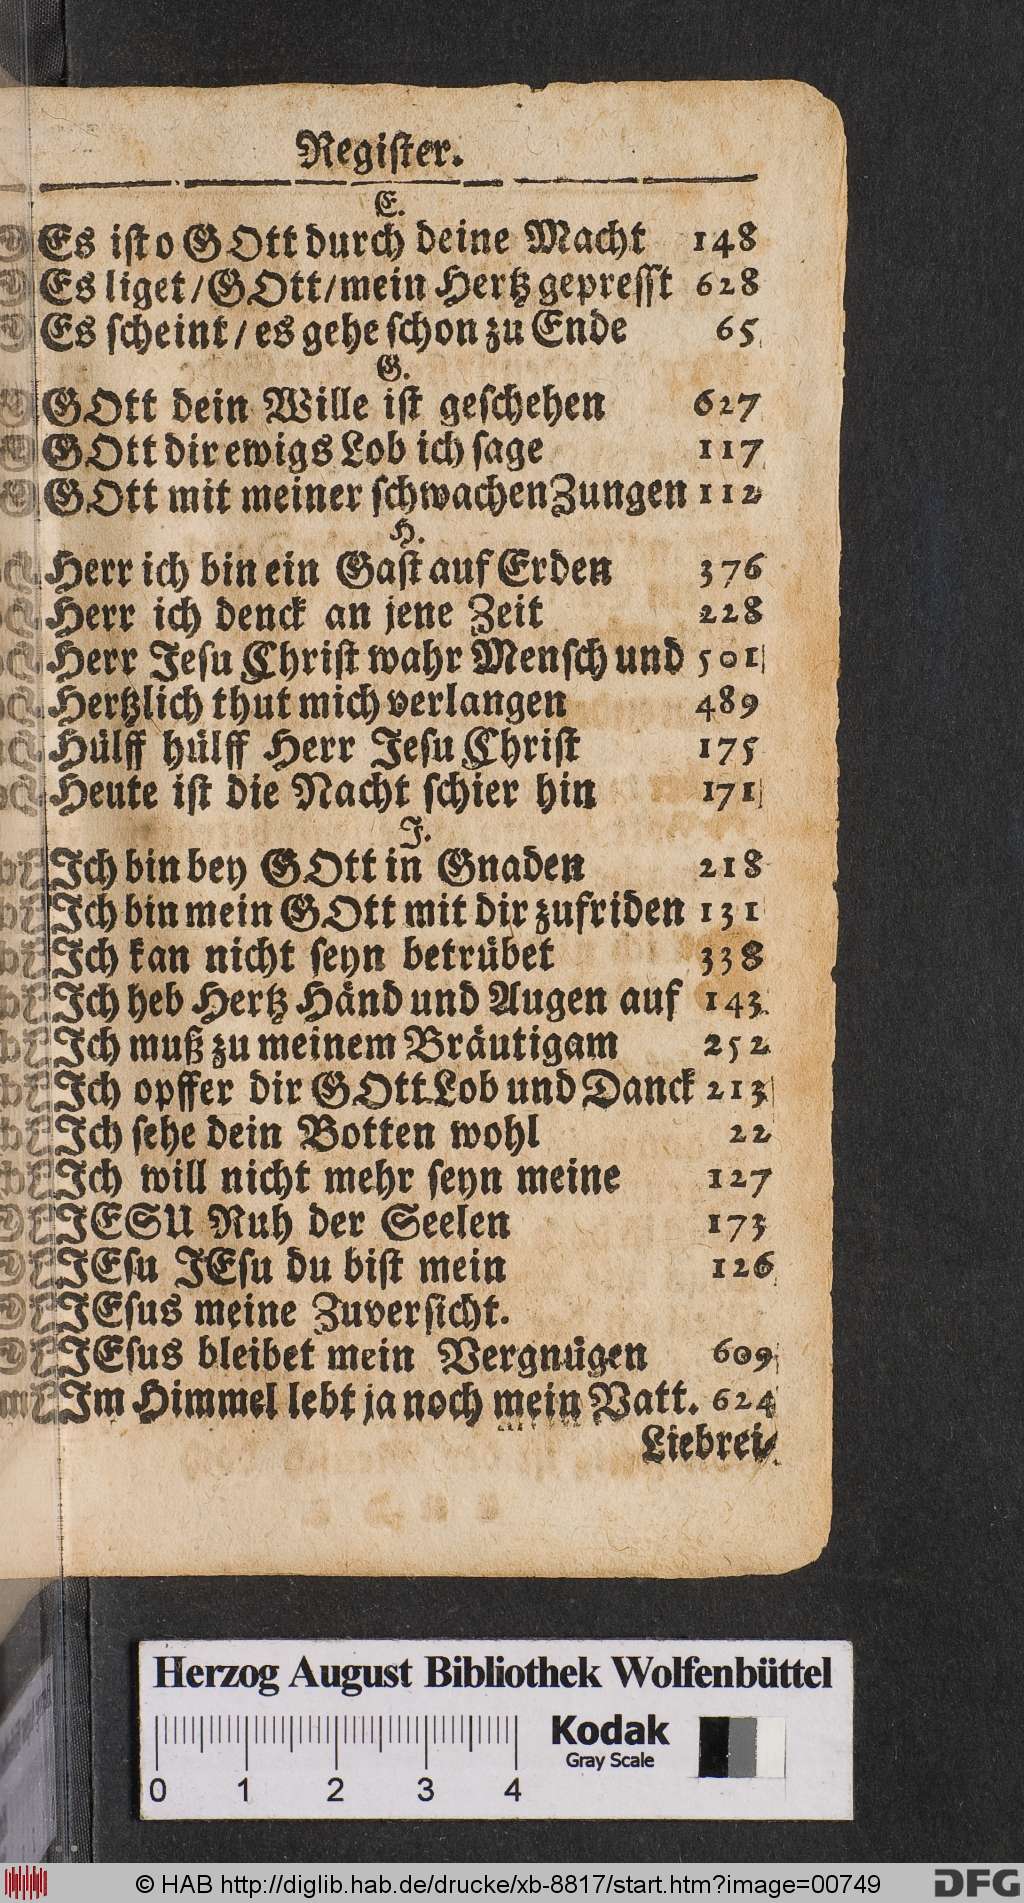 Register.
E.
Es ist o GOtt durch deine Macht 148
Es liget / GOtt / mein Hertz gepresst 628
Es scheint / es gehe schon zu Ende 65
G.
GOtt dein Wille ist geschehen 627
GOtt dir ewigs Lob ich sage 117
GOtt mit meiner schwachen Zungen 112
H.
Herr ich bin ein Gast auf Erden 376
Herr ich denck an jene Zeit 228
Herr Jesu Christ wahr Mensch und 501
Hertzlich thut mich verlangen 489
Hülff hülff Herr Jesu Christ 175
Heute ist die Nacht schier hin 171
J.
Ich bin bey GOtt in Gnaden 218
Ich bin mein GOtt mit dir zufriden 131
Ich kan nicht seyn betrübet 338
Ich heb Hertz Händ und Augen auf 143
Ich muß zu meinem Bräutigam 252
Ich opffer dir GOtt Lob und Danck 213
Ich sehe dein Botten wohl 22
Ich will nicht mehr seyn meine 127
JESU Ruh der Seelen 173
JEsu JEsu du bist mein 126
JEsus meine Zuversicht.
JEsus bleibet mein Vergnügen 609
Im Himmel lebt ja noch mein Vatt. 624
Liebrei-
Herzog August Bibliothek Wolfenbüttel
Kodak
Gray Scale
0 1 2 3 4
© HAB http://diglib.hab.de/drucke/xb-8817/start.htm?image=00749
DFG